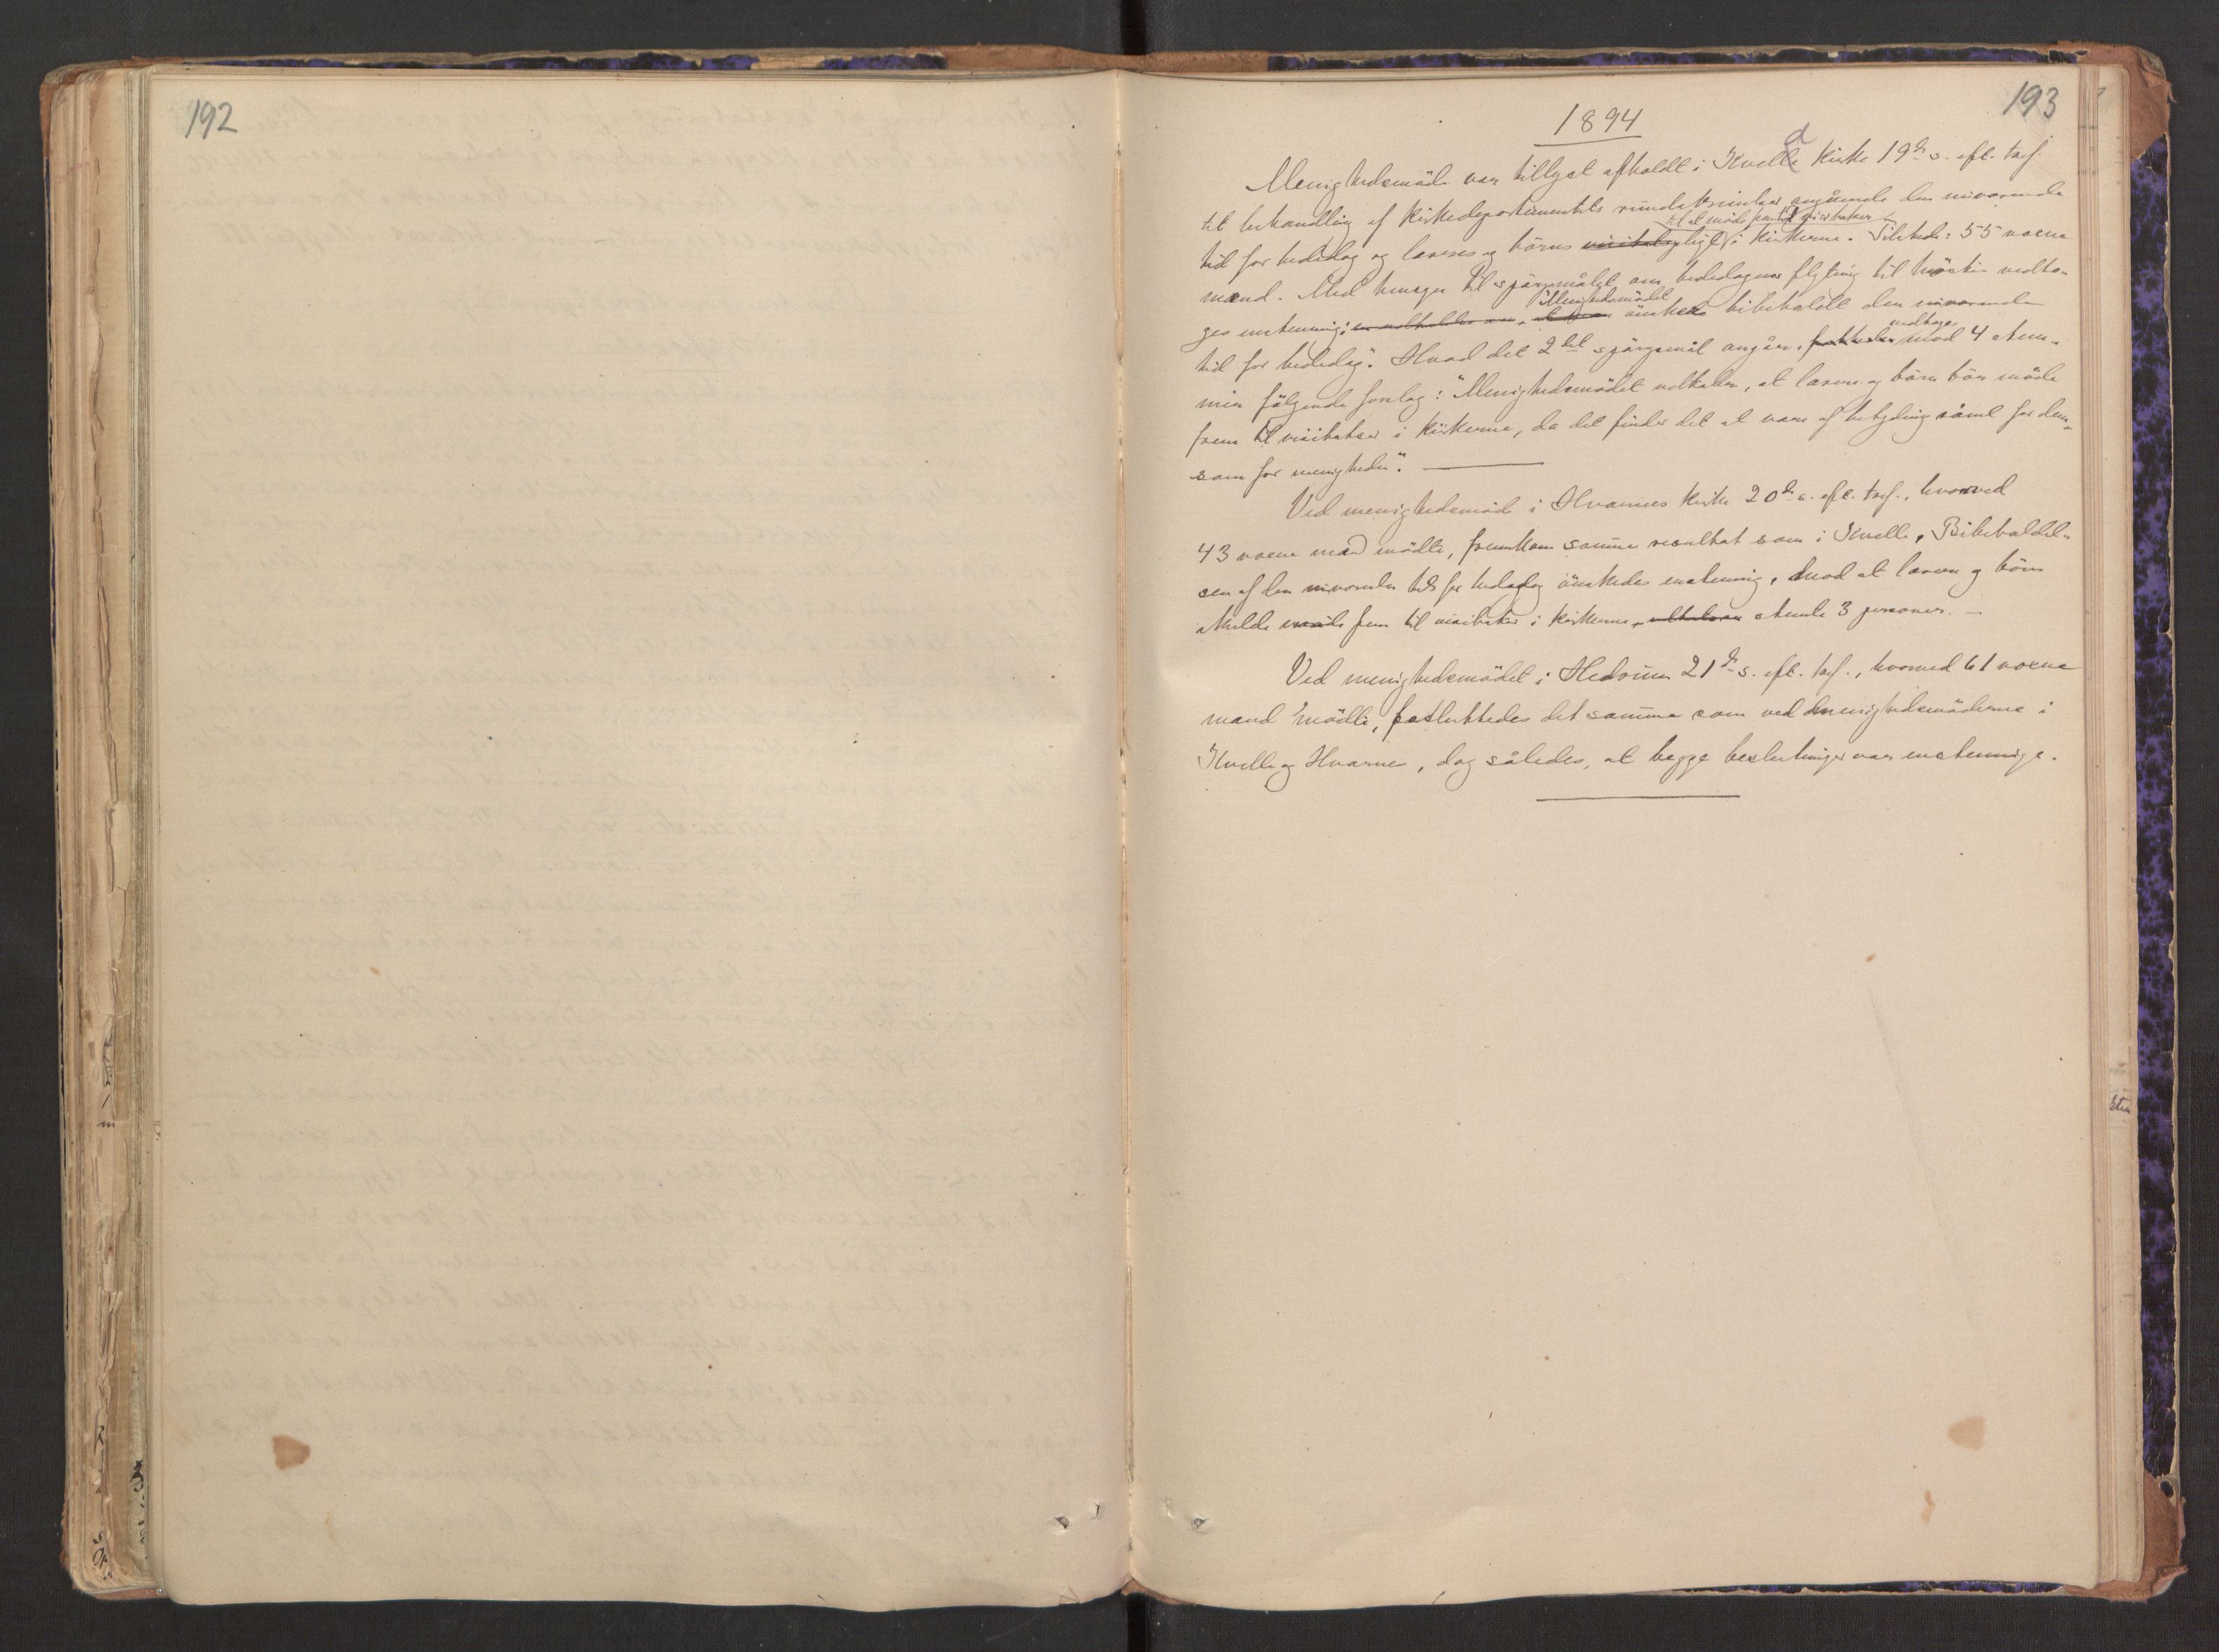 192
193
1894
Menighedsmöde var tillyst afholdt i Kvelle kirke 19de s. eft. tref.
til behandling af Kirkedepartementets rundskrivelser angående den nuværende
til at möde frem til visitatser
tid for bededag og læreres og börns pligt i kirkerne. Tilstede: 55 voxne
mænd. Med hensyn til spörgsmålet om bededagens flytning til hösten vedto-
Menighedsmödet
ges enstemmig: önsker bibeholdt den nuværende
vedtages
tid for bededag". Hvad det 2det spörgsmål angår, mod 4 stem-
mer fölgende forslag: "Menighedsmödet udtaler, at lærere og börn bör möde
frem til visitatser i kirkerne, da det finder det at være af betydning såvel for dem,
som for menigheden".
Ved menighedsmöde i Hvarnes kirke 20de s. eft. tref., hvorved
43 voxne mænd mödte, fremkom samme resultat som i Kvelle. Bibeholdel-
sen af den nuværende tid for bededag önskedes enstemmig, mod at lærere og börn
skulde möde frem til visitatser i kirkerne, stemte 3 personer. —
Ved menighedsmödet i Hedrum 21de s. eft. tref., hvorved 61 voxne
mænd mödte, besluttedes det samme som ved menighedsmöderne i
Kvelle og Hvarnes, dog således, at begge beslutninger var enstemmige.